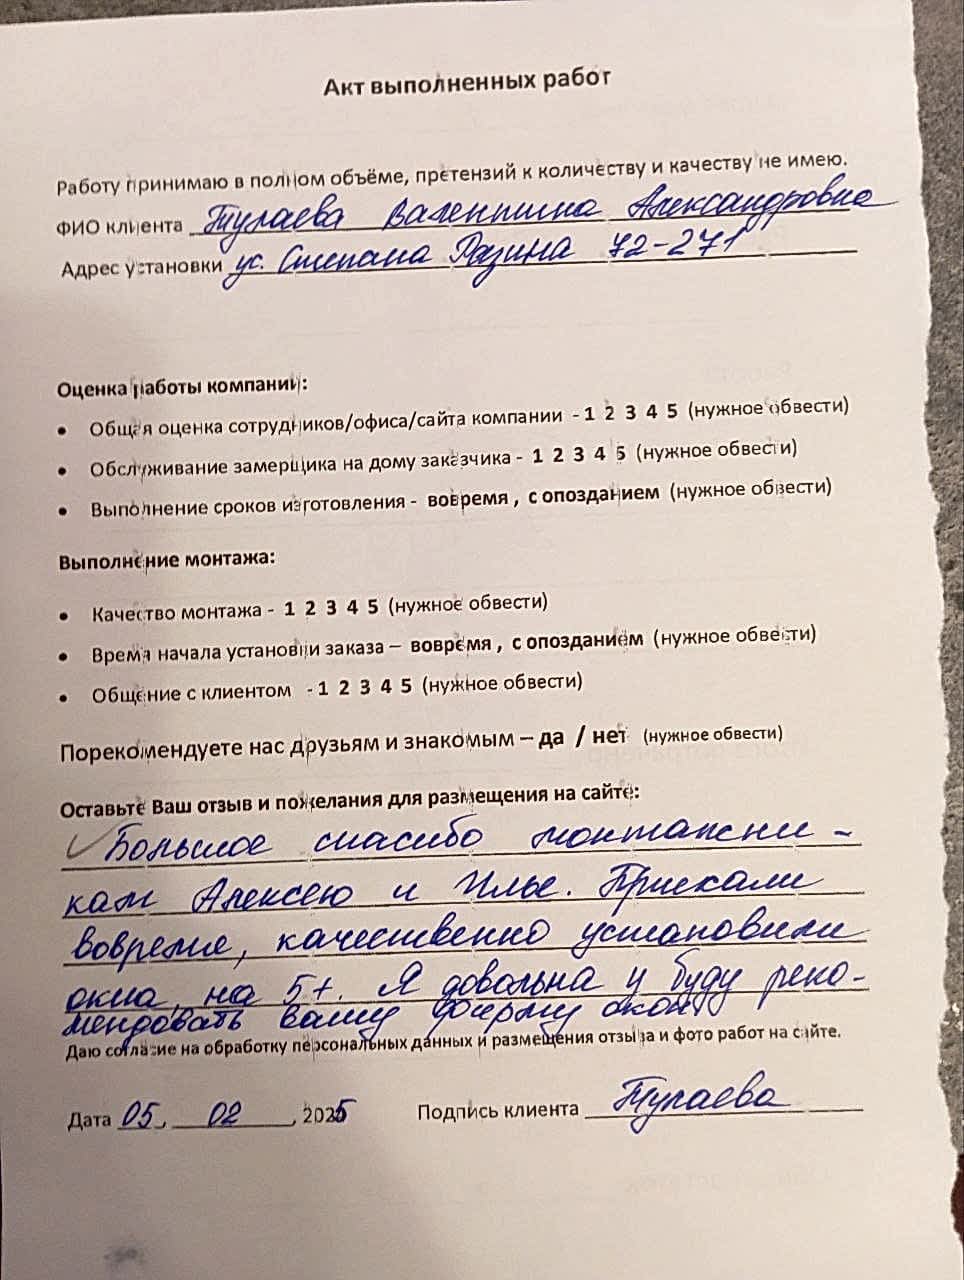 Акт выполненных работ
Работу принимаю в полном объёме, претензий к количеству и качеству не имею.
ФИО клиента Тулаева Валентина Александровна
Адрес установки ул. Степана Разина 72-271
Оценка работы компании:
• Общая оценка сотрудников/офиса/сайта компании - 1 2 3 4 5 (нужное обвести)
• Обслуживание замерщика на дому заказчика - 1 2 3 4 5 (нужное обвести)
• Выполнение сроков изготовления - вовремя , с опозданием (нужное обвести)
Выполнение монтажа:
• Качество монтажа - 1 2 3 4 5 (нужное обвести)
• Время начала установки заказа – вовремя , с опозданием (нужное обвести)
• Общение с клиентом - 1 2 3 4 5 (нужное обвести)
Порекомендуете нас друзьям и знакомым – да / нет (нужное обвести)
Оставьте Ваш отзыв и пожелания для размещения на сайте:
Большое спасибо монтажни-
кам Алексею и Илье. Приехали
вовремя, качественно установили
окна, на 5+. Я довольна и буду реко-
мендовать вашу фирму окон
Даю согласие на обработку персональных данных и размещения отзыва и фото работ на сайте.
Дата 05, 02, 2025 Подпись клиента Тулаева